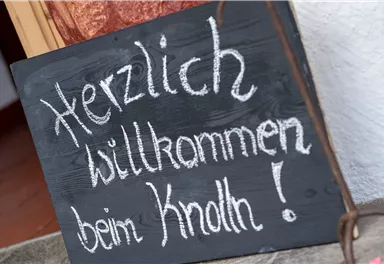 Herzlich
willkommen
beim Knolln!